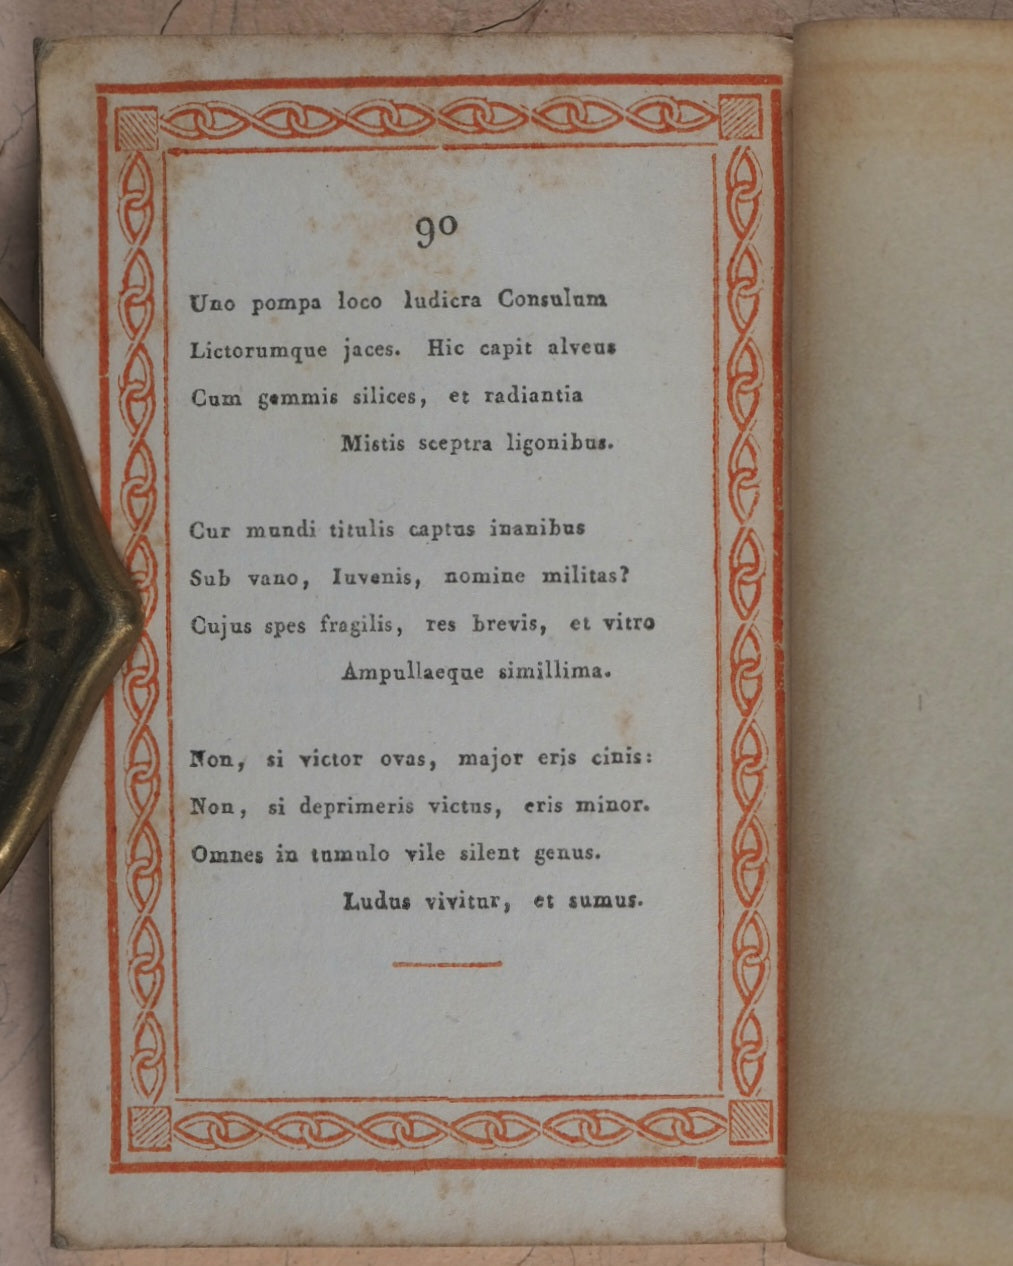 90
Uno pompa loco ludicra Consulum
Lictorumque jaces. Hic capit alveus
Cum gemmis silices, et radiantia
Mistis sceptra ligonibus.
Cur mundi titulis captus inanibus
Sub vano, Iuvenis, nomine militas?
Cujus spes fragilis, res brevis, et vitro
Ampullaeque simillima.
Non, si victor ovas, major eris cinis:
Non, si deprimeris victus, eris minor.
Omnes in tumulo vile silent genus.
Ludus vivitur, et sumus.